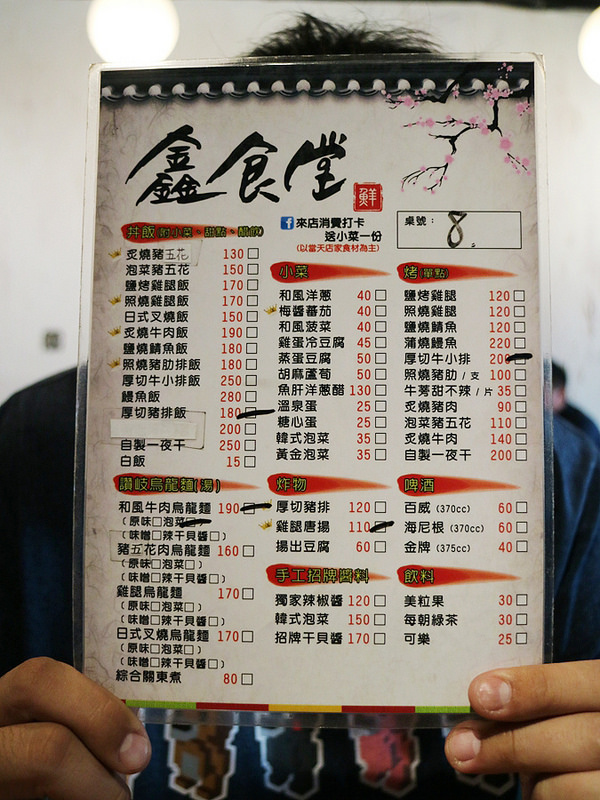 鑫食堂
鮮
來店消費打卡
送小菜一份
(以當天店家食材為主)
桌號：8.
丼飯(附小菜。甜點。酷飲)
炙燒豬五花 130
泡菜豬五花 150
鹽烤雞腿飯 170
照燒雞腿飯 170
日式叉燒飯 150
炙燒牛肉飯 190
鹽燒鯖魚飯 180
照燒豬肋排飯 180
厚切牛小排飯 250
鰻魚飯 280
厚切豬排飯 180
200
自製一夜干 250
白飯 15
讚岐烏龍麵(湯)
和風牛肉烏龍麵 190
(原味□泡菜
(味噌□辣干貝醬□)
豬五花肉烏龍麵 160
(原味□泡菜□)
(味噌□辣干貝醬□)
雞腿烏龍麵 170
(原味□泡菜□)
(味噌□辣干貝醬□)
日式叉燒烏龍麵 170
(原味□泡菜□)
(味噌□辣干貝醬□)
綜合關東煮 80
小菜
和風洋蔥 40
梅醬蕃茄 40
和風菠菜 40
雞蛋冷豆腐 45
蒸蛋豆腐 50
胡麻蘆筍 50
魚肝洋蔥醋 130
溫泉蛋 25
糖心蛋 25
韓式泡菜 35
黃金泡菜 35
炸物
厚切豬排 120
雞腿唐揚 110
揚出豆腐 60
手工招牌醬料
獨家辣椒醬 120
韓式泡菜 150
招牌干貝醬 170
烤(單點)
鹽烤雞腿 120
照燒雞腿 120
鹽燒鯖魚 120
蒲燒鰻魚 220
厚切牛小排 200
照燒豬肋/支 100
牛蒡甜不辣/片 35
炙燒豬肉 90
泡菜豬五花 110
炙燒牛肉 140
自製一夜干 200
啤酒
百威(370cc) 60
海尼根(370cc) 60
金牌(375cc) 40
飲料
美粒果 30
每朝綠茶 30
可樂 25